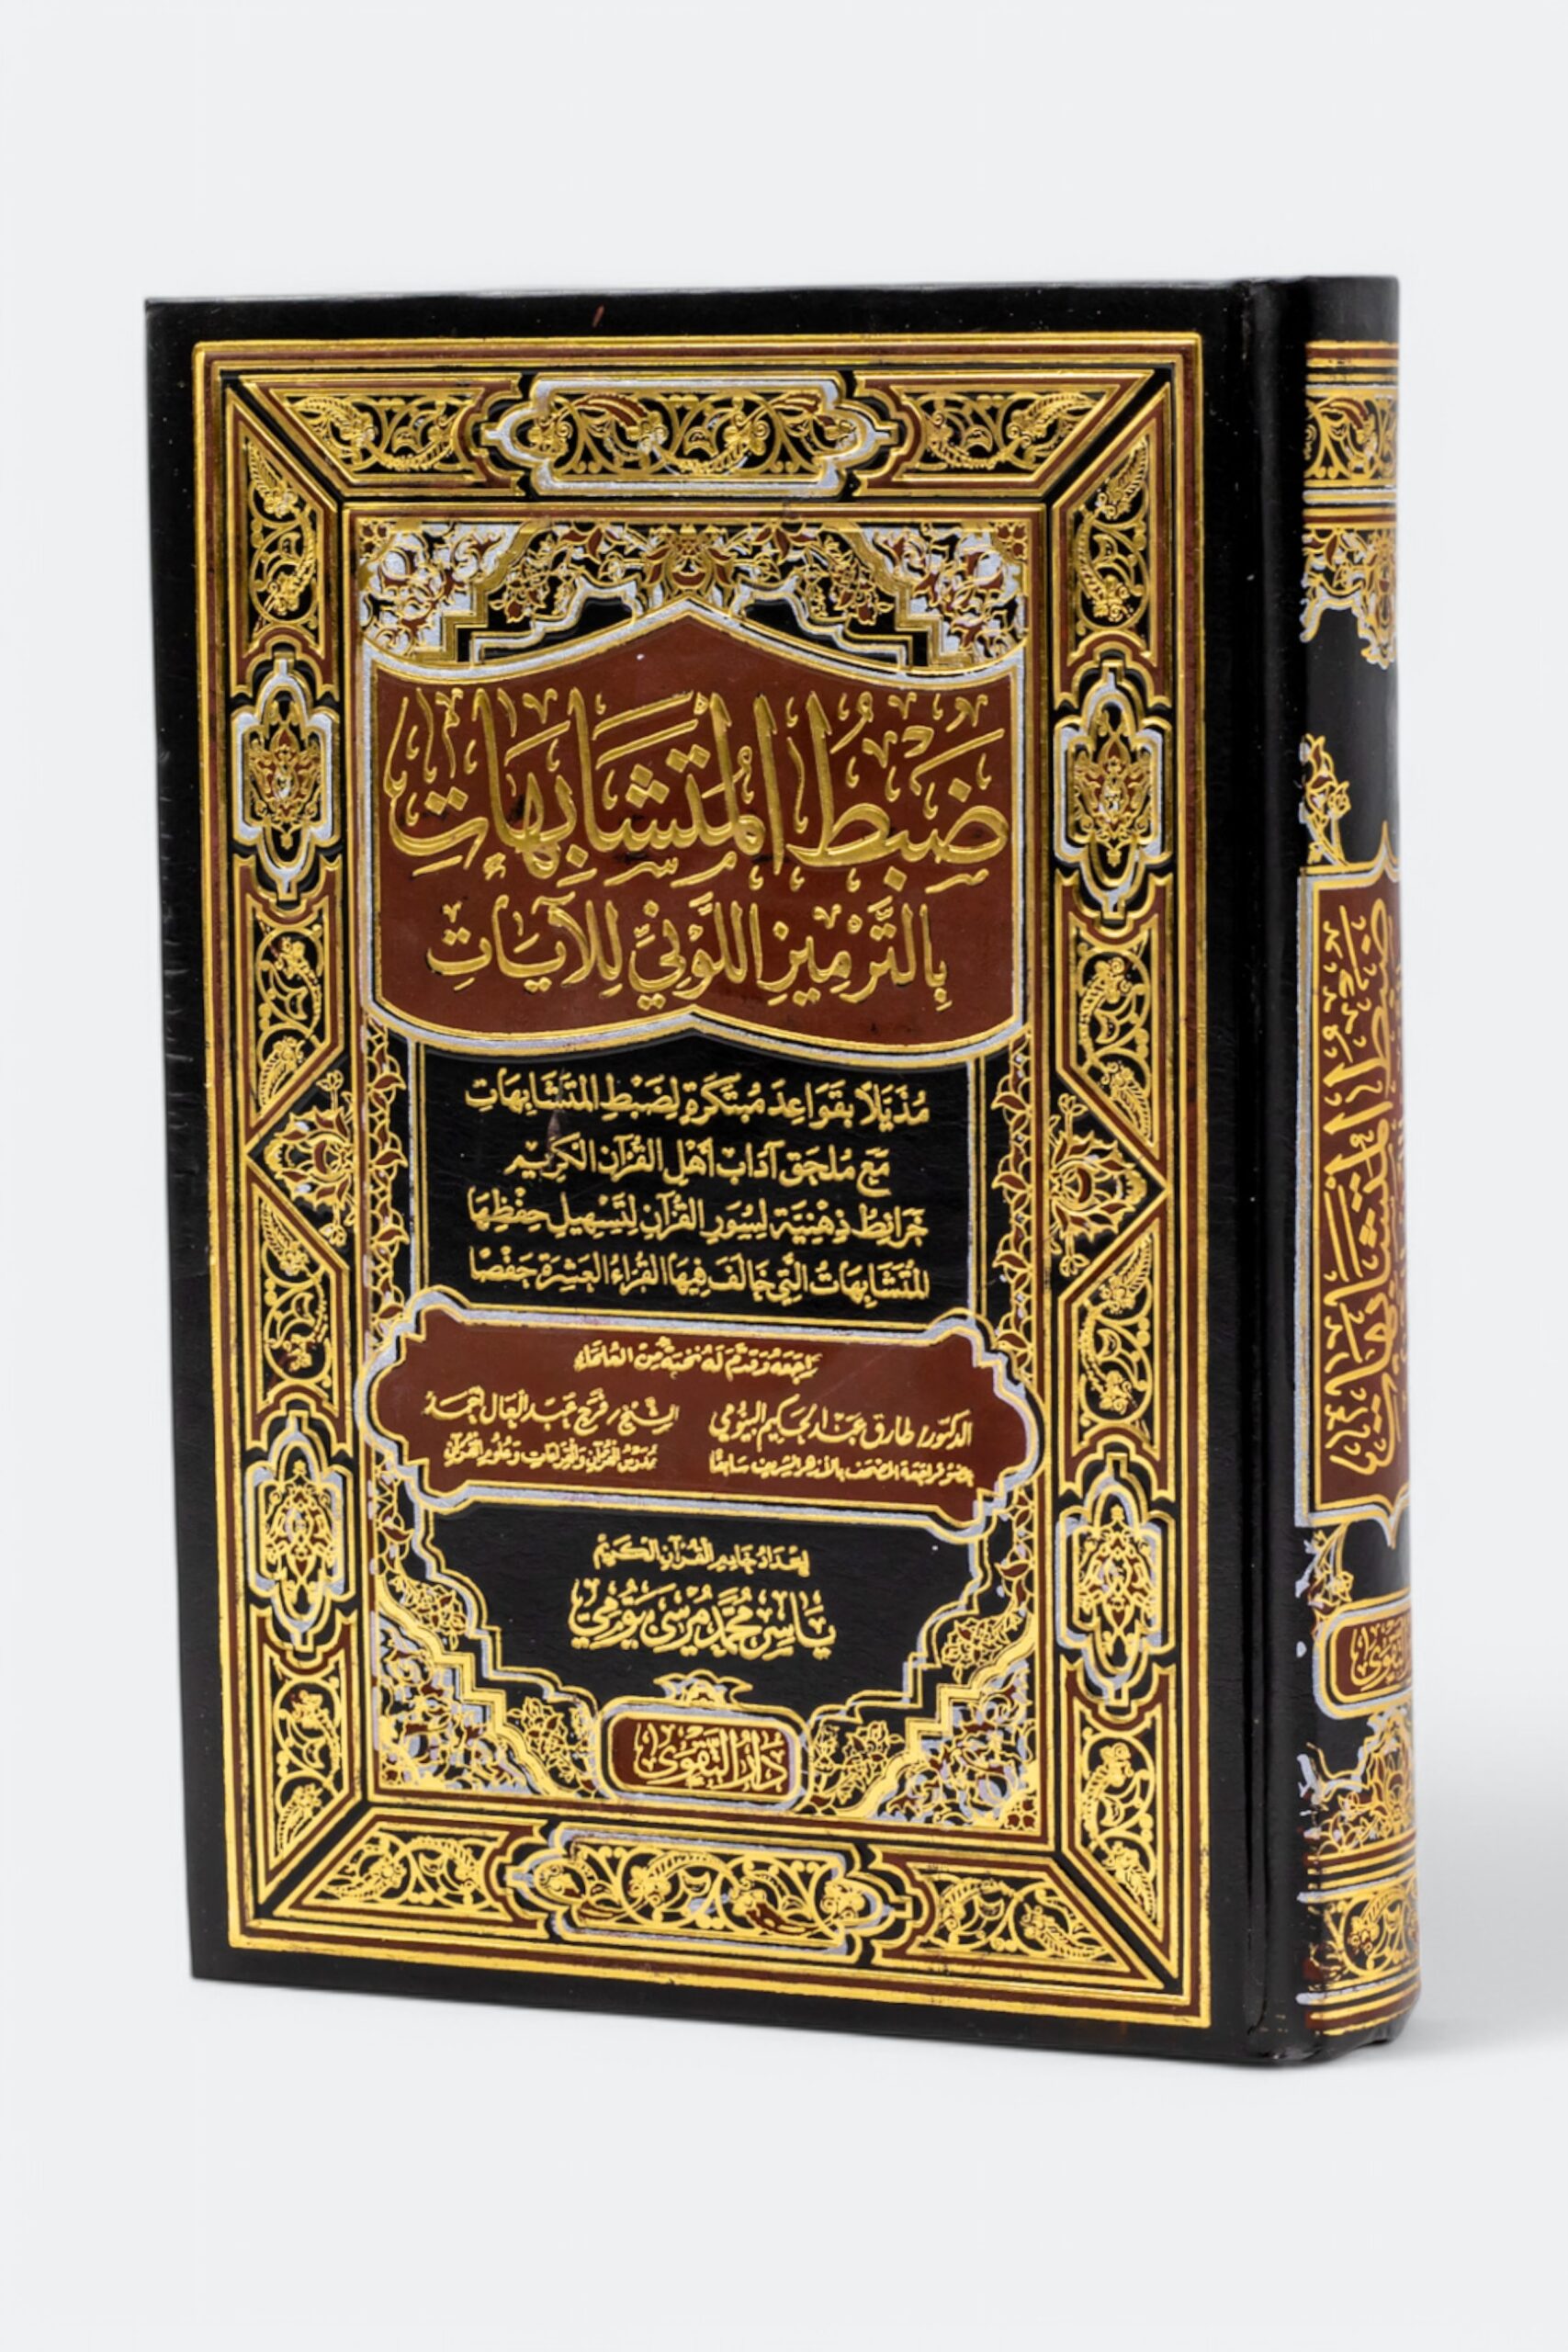 ضَبْطُ المُتَشَابِهَاتِ
بِالتَّرْمِيزِ اللَّوْنِيِّ لِلآيَاتِ
مُذَيَّلاً بقَوَاعِدَ مُبْتَكَرَةٍ لِضَبْطِ المُتَشَابِهَاتِ
مَعَ مُلحَق آدَاب أَهْلِ القُرْآن الكَرِيْمِ
خَرَائِطُ ذِهْنِيَّة لِسُوَرِ القُرْآنِ لِتَسْهِيلِ حِفْظِهَا
المُتَشَابِهَاتُ الَّتِي خَالَفَ فِيهَا القُرَّاءُ العَشرَة حَفْصًا
رَاجَعَهُ وَقَدَّمَ لَهُ نُخبَةٌ مِنَ العُلَمَاءِ
الدكتور/ طارق عبد الحكيم البيومي
الشيخ/ فرج عبد العال
عضو مراجعة المصحف بالأزهر الشريف سابقًا
مدرس القرآن والقراءات وعلوم القرآن
إعْدَادُ خَادِمِ القُرْآنِ الكَرِيْمِ
يَاسِر مُحَمَّد مُرْسِي بَيُّومِي
دَارُ التَّقْوَى
ضَبْطُ المُتَشَابِهَاتِ